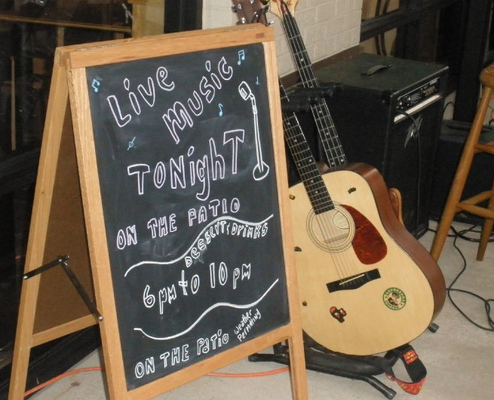 Live
Music
Tonight
ON THE PATIO
DESSERTS DRINKS
6pm to 10 pm
ON THE PATIO
Weather
Permitting